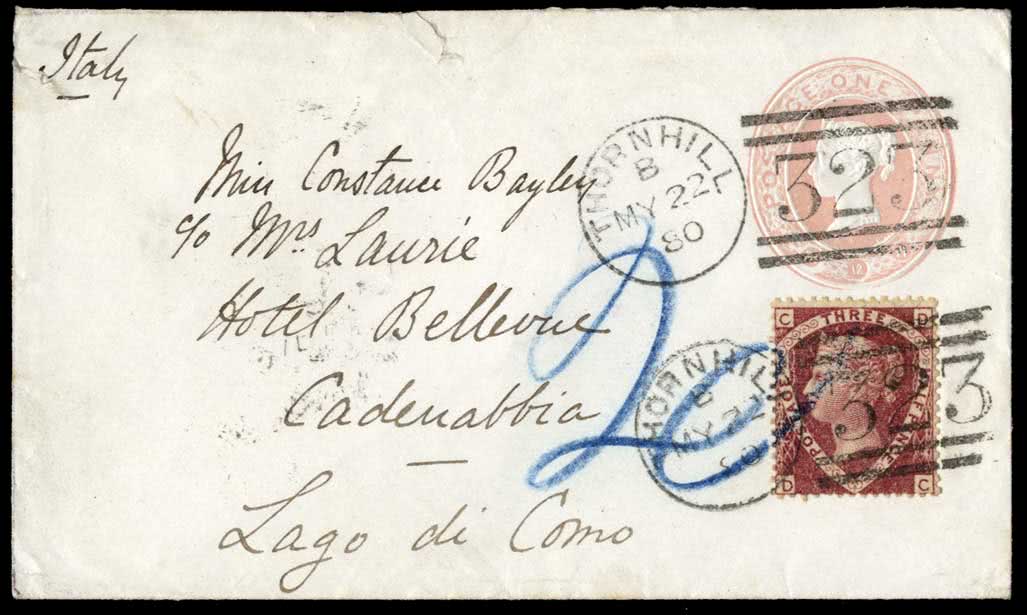 Italy
POSTAGE ONE PENNY
12
THORNHILL
B
MY 22
80
323
Miss Constance Bayley
c/o Mrs Laurie
Hotel Bellevue
Cadenabbia
Lago di Como
20
THORNHILL
B
MY 22
80
C THREE D
HALF PENCE
POSTAGE
D C
323